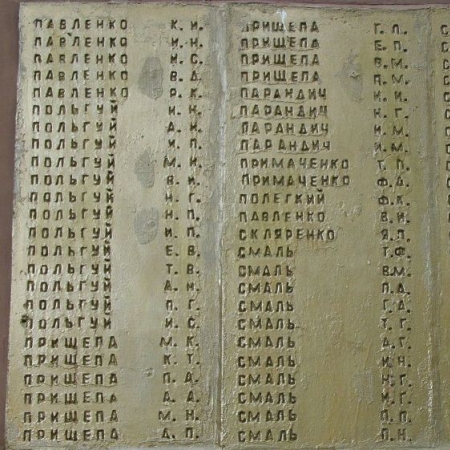 ПАВЛЕНКО К. И.
ПАВЛЕНКО И. Н.
ПАВЛЕНКО И. С.
ПАВЛЕНКО В. Д.
ПАВЛЕНКО Р. К.
ПОЛЬГУЙ И. Н.
ПОЛЬГУЙ А. И.
ПОЛЬГУЙ И. П.
ПОЛЬГУЙ М. И.
ПОЛЬГУЙ В. И.
ПОЛЬГУЙ Н. Г.
ПОЛЬГУЙ Н. П.
ПОЛЬГУЙ И. П.
ПОЛЬГУЙ Е. В.
ПОЛЬГУЙ Т. В.
ПОЛЬГУЙ А. Н.
ПОЛЬГУЙ П. Г.
ПОЛЬГУЙ И. С.
ПРИЩЕПА М. К.
ПРИЩЕПА К. Т.
ПРИЩЕПА П. А.
ПРИЩЕПА А. А.
ПРИЩЕПА М. Н.
ПРИЩЕПА Д. П.
ПРИЩЕПА Г. П.
ПРИЩЕПА Е. П.
ПРИЩЕПА В. М.
ПРИЩЕПА П. М.
ПАРАНДИЧ К. И.
ПАРАНДИЧ Н. Г.
ПАРАНДИЧ И. М.
ПАРАНДИЧ И. М.
ПРИМАЧЕНКО Т. П.
ПРИМАЧЕНКО Ф. Д.
ПОЛЕГКИЙ Ф. К.
ПАВЛЕНКО В. И.
СКЛЯРЕНКО Я. П.
СМАЛЬ Т. Ф.
СМАЛЬ В. М.
СМАЛЬ П. Д.
СМАЛЬ Г. Д.
СМАЛЬ Т. Г.
СМАЛЬ А. Г.
СМАЛЬ И. Н.
СМАЛЬ Н. Г.
СМАЛЬ И. Г.
СМАЛЬ П. П.
СМАЛЬ П. Н.